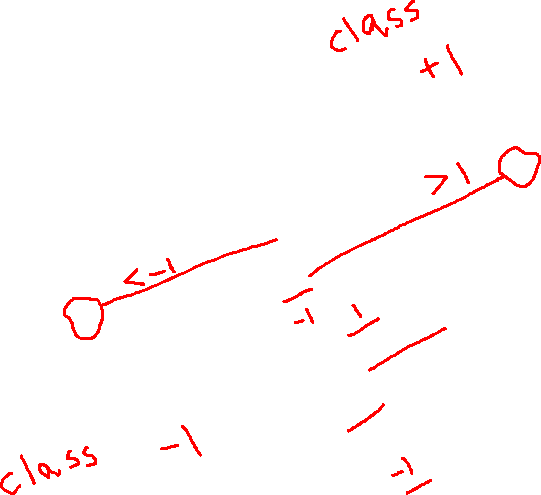 class
+1
>1
<-1
-1
1
class -1
-1